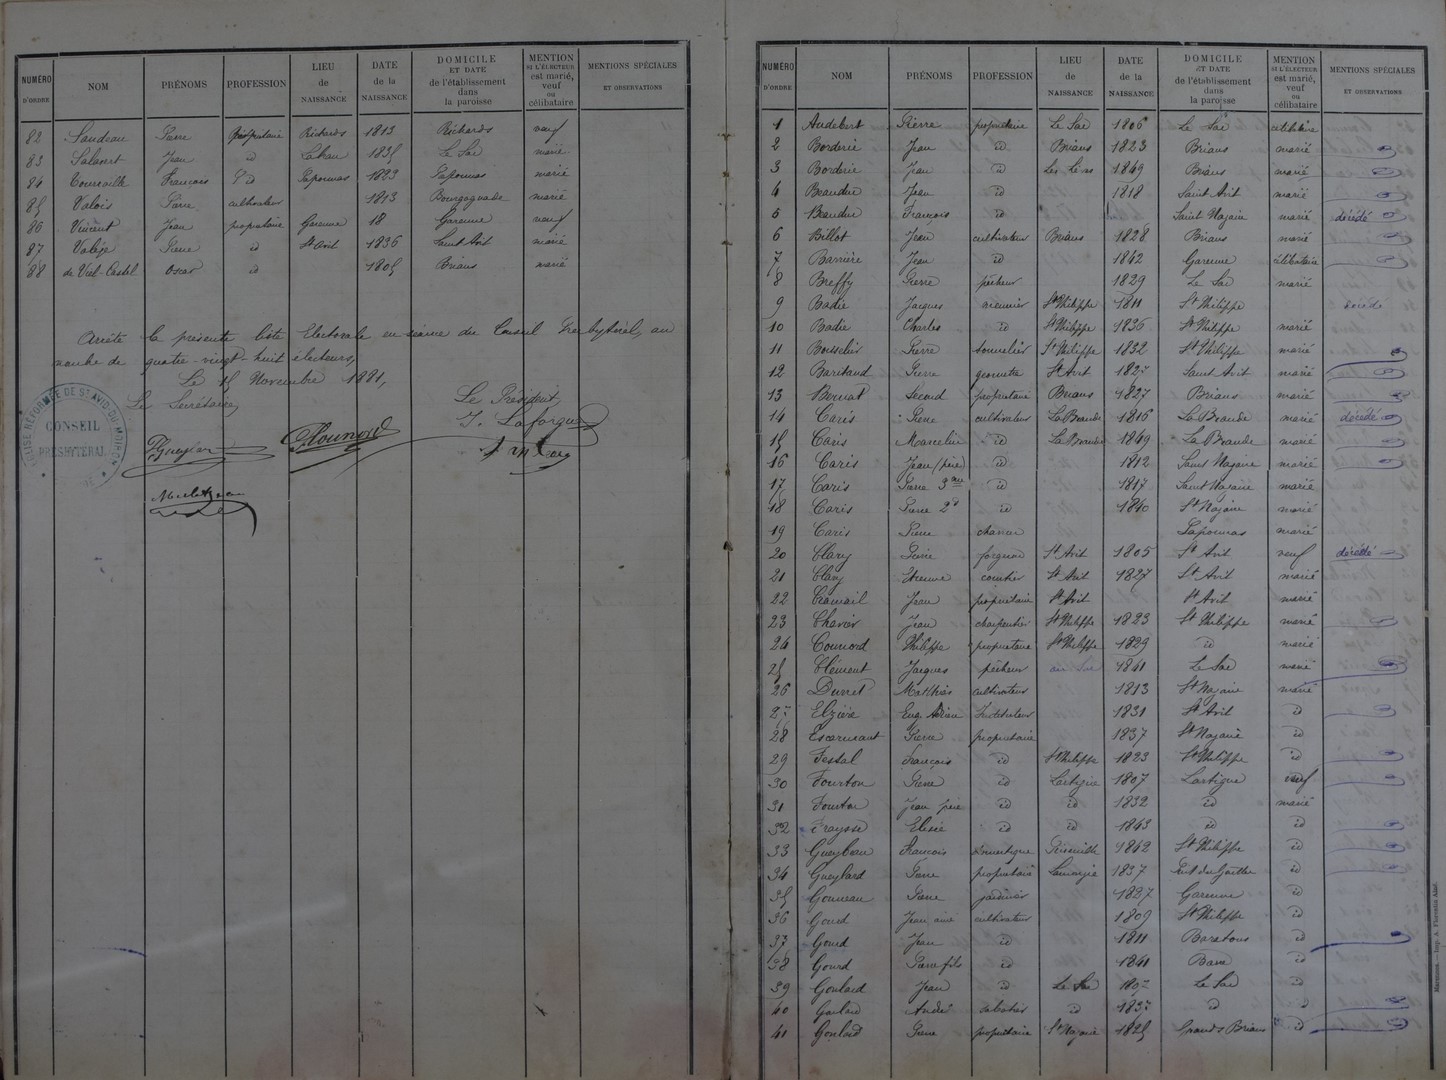 NUMÉRO D'ORDRE NOM PRÉNOMS PROFESSION LIEU de NAISSANCE DATE de la NAISSANCE DOMICILE ET DATE de l'établissement dans la paroisse MENTION SI L'ÉLECTEUR est marié, veuf ou célibataire MENTIONS SPÉCIALES ET OBSERVATIONS
82 Sandeau Pierre propriétaire Richards 1813 Richards veuf
83 Salavert Jean id 1835 Le Sac marié
84 Tourville François id 1823 marié
85 Valois Pierre cultivateur 1813 marié
86 Vincent Jean propriétaire Garenne 18 Garenne veuf
87 Pierre id St Avit 1836 Saint Avit marié
88 de Viel-Castel Oscar id 1805 Briaus marié
Arrêté la présente liste Electorale en séance du Conseil Presbytéral, au
nombre de quatre-vingt-huit électeurs,
Le 15 Novembre 1881,
Le Secrétaire, Le Président,
J. Laforgue
EGLISE RÉFORMÉE DE ST AVID DU MOIRON
CONSEIL
PRESBYTÉRAL
NUMÉRO D'ORDRE NOM PRÉNOMS PROFESSION LIEU de NAISSANCE DATE de la NAISSANCE DOMICILE ET DATE de l'établissement dans la paroisse MENTION SI L'ÉLECTEUR est marié, veuf ou célibataire MENTIONS SPÉCIALES ET OBSERVATIONS
1 Audebert Pierre propriétaire Le Sac 1806 Le Sac célibataire
2 Borderie Jean id Briaus 1823 Briaus marié
3 Borderie Jean id 1849 Briaus marié
4 Beaudue Jean id 1818 Saint Avit marié
5 Beaudue François id Saint Nazaire marié décédé
6 Billot Jean cultivateur Briaus 1828 Briaus marié
7 Barrière Jean id 1842 Garenne célibataire
8 Breffy Pierre pêcheur 1829 Le Sac marié
9 Badie Jacques meunier St Philippe 1811 St Philippe décédé
10 Badie Charles id St Philippe 1836 St Philippe marié
11 Boisselier Pierre tonnelier St Philippe 1832 St Philippe marié
12 Baritaud Pierre géomètre St Avit 1827 Saint Avit marié
13 Second propriétaire Briaus 1827 Briaus marié
14 Caris Pierre cultivateur La Braude 1816 La Braude marié décédé
15 Caris Marcelin id La Braude 1849 La Braude marié
16 Caris Jean (père) id 1812 Saint Nazaire marié
17 Caris Pierre id 1817 Saint Nazaire marié
18 Caris Pierre 2d id 1840 St Nazaire marié
19 Caris Pierre marié
20 Clary Pierre forgeron St Avit 1805 St Avit veuf décédé
21 Clary Etienne courtier St Avit 1827 St Avit marié
22 Cramail Jean propriétaire St Avit St Avit marié
23 Jean charpentier St Philippe 1823 St Philippe marié
24 Counord Philippe propriétaire St Philippe 1829 id marié
25 Clément Jacques pêcheur au Sac 1841 Le Sac marié
26 Durret Mathias cultivateur 1813 St Nazaire marié
27 Elzière Eug. Instituteur 1831 St Avit id
28 Escarmant Pierre propriétaire 1837 St Nazaire id
29 Festal François id St Philippe 1823 St Philippe id
30 Fourton Pierre id Lartigue 1807 Lartigue veuf
31 Fourton Jean père id id 1832 id marié
32 Fraysse Elisée id id 1843 id id
33 François domestique 1842 St Philippe id
34 Gueylard Pierre propriétaire 1837 id
35 Gouneau Pierre jardinier 1827 Garenne id
36 Gourd Jean ainé cultivateur 1809 St Philippe id
37 Gourd Jean id 1811 Baratous id
38 Gourd Pierre fils id 1841 id
39 Goulard Jean id Le Sac 1807 Le Sac id
40 Goulard André sabotier id 1837 id id
41 Goulard Pierre propriétaire St Nazaire 1825 Grands Briaus id